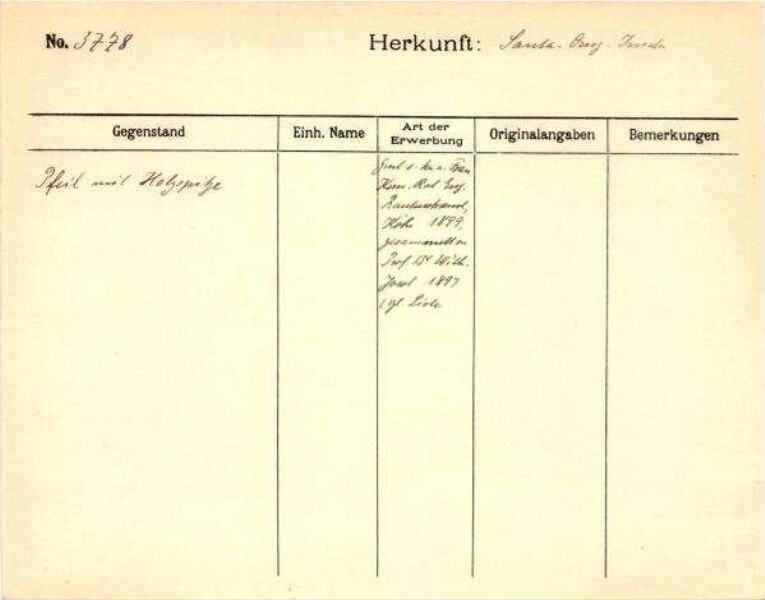 No. 3778 Herkunft: Santa-Cruz-Inseln
Gegenstand Einh. Name Art der Erwerbung Originalangaben Bemerkungen
Pfeil mit Holzspitze
Frau
Kom. Rat Eug.
Rautenstrauch,
Köln 1899,
gesammelt von
Prof. Dr Wilh.
Joest 1897
vgl. Liste